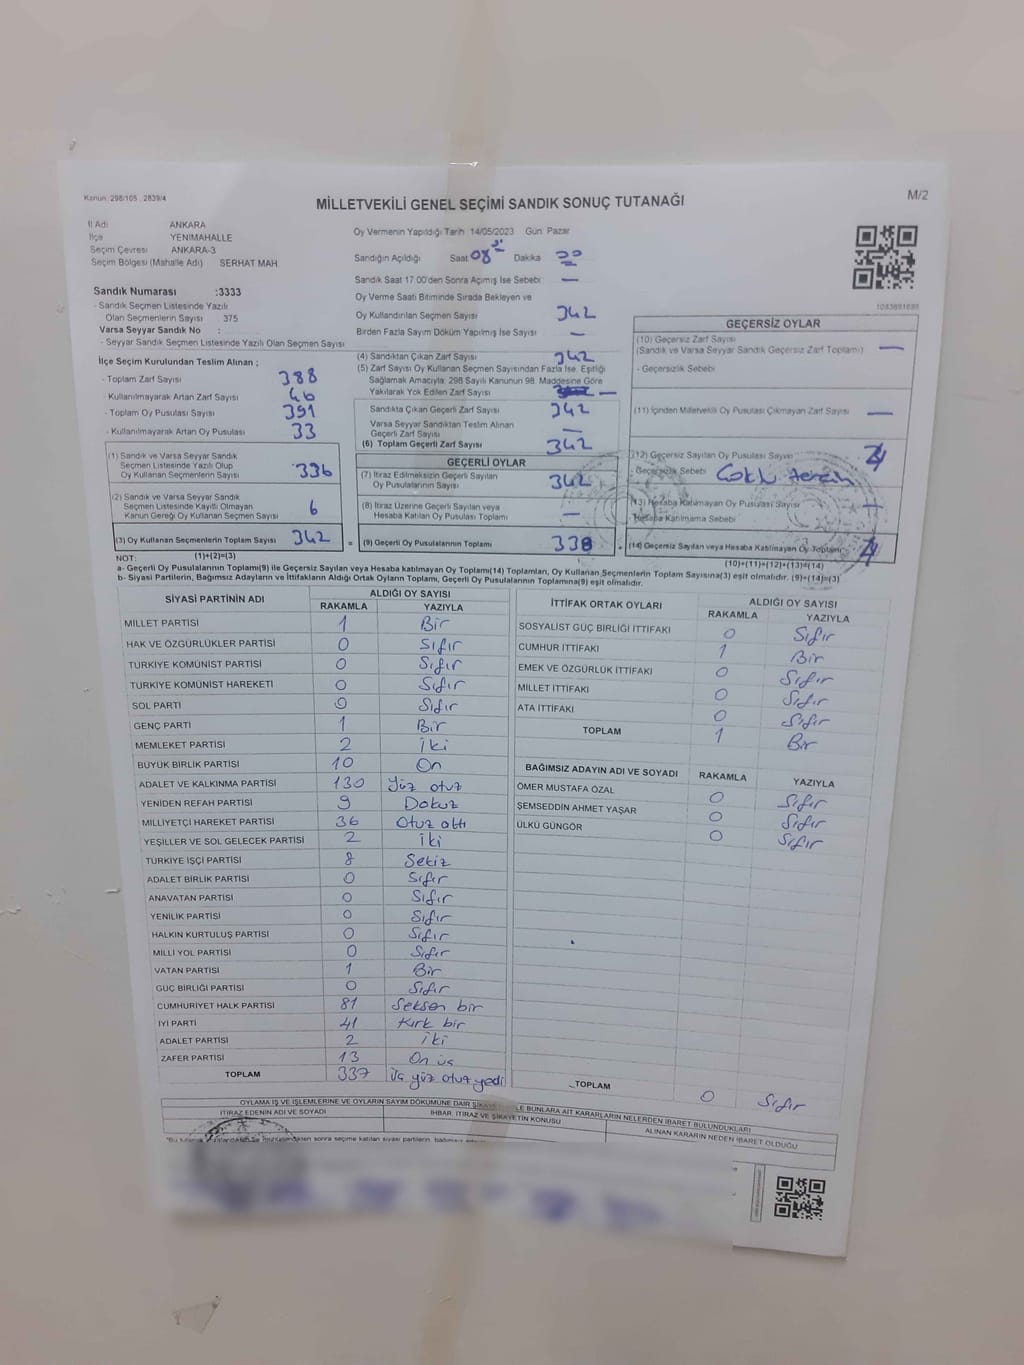 Kanun: 298/105 , 2839/4
MİLLETVEKİLİ GENEL SEÇİMİ SANDIK SONUÇ TUTANAĞI
M/2
İl Adı ANKARA
İlçe YENİMAHALLE
Seçim Çevresi ANKARA-3
Seçim Bölgesi (Mahalle Adı) SERHAT MAH
Sandık Numarası :3333
- Sandık Seçmen Listesinde Yazılı
Olan Seçmenlerin Sayısı 375
Varsa Seyyar Sandık No :
- Seyyar Sandık Seçmen Listesinde Yazılı Olan Seçmen Sayısı
İlçe Seçim Kurulundan Teslim Alınan ;
- Toplam Zarf Sayısı 388
- Kullanılmayarak Artan Zarf Sayısı 46
- Toplam Oy Pusulası Sayısı 391
- Kullanılmayarak Artan Oy Pusulası 33
(1) Sandık ve Varsa Seyyar Sandık
Seçmen Listesinde Yazılı Olup
Oy Kullanan Seçmenlerin Sayısı 336
(2) Sandık ve Varsa Seyyar Sandık
Seçmen Listesinde Kayıtlı Olmayan
Kanun Gereği Oy Kullanan Seçmen Sayısı 6
(3) Oy Kullanan Seçmenlerin Toplam Sayısı 342
Oy Vermenin Yapıldığı Tarih 14/05/2023 Gün Pazar
Sandığın Açıldığı Saat 08 Dakika
Sandık Saat 17.00'den Sonra Açılmış İse Sebebi —
Oy Verme Saati Bitiminde Sırada Bekleyen ve
Oy Kullandırılan Seçmen Sayısı 342
Birden Fazla Sayım Döküm Yapılmış İse Sayısı —
(4) Sandıktan Çıkan Zarf Sayısı 342
(5) Zarf Sayısı Oy Kullanan Seçmen Sayısından Fazla İse, Eşitliği
Sağlamak Amacıyla; 298 Sayılı Kanunun 98. Maddesine Göre
Yakılarak Yok Edilen Zarf Sayısı —
Sandıkta Çıkan Geçerli Zarf Sayısı 342
Varsa Seyyar Sandıktan Teslim Alınan
Geçerli Zarf Sayısı —
(6) Toplam Geçerli Zarf Sayısı 342
GEÇERLİ OYLAR
(7) İtiraz Edilmeksizin Geçerli Sayılan
Oy Pusulalarının Sayısı 342
(8) İtiraz Üzerine Geçerli Sayılan veya
Hesaba Katılan Oy Pusulası Toplamı —
= (9) Geçerli Oy Pusulalarının Toplamı 338
1083891695
GEÇERSİZ OYLAR
(10) Geçersiz Zarf Sayısı
(Sandık ve Varsa Seyyar Sandık Geçersiz Zarf Toplamı) —
- Geçersizlik Sebebi
(11) İçinden Milletvekili Oy Pusulası Çıkmayan Zarf Sayısı —
(12) Geçersiz Sayılan Oy Pusulası Sayısı 4
- Geçersizlik Sebebi Çoklu tercih
(13) Hesaba Katılmayan Oy Pusulası Sayısı —
- Hesaba Katılmama Sebebi
+ (14) Geçersiz Sayılan veya Hesaba Katılmayan Oy Toplamı 4
NOT: (1)+(2)=(3)
(10)+(11)+(12)+(13)=(14)
a- Geçerli Oy Pusulalarının Toplamı(9) ile Geçersiz Sayılan veya Hesaba katılmayan Oy Toplamı(14) Toplamları, Oy Kullanan Seçmenlerin Toplam Sayısına(3) eşit olmalıdır. (9)+(14)=(3)
b- Siyasi Partilerin, Bağımsız Adayların ve İttifakların Aldığı Ortak Oyların Toplamı, Geçerli Oy Pusulalarının Toplamına(9) eşit olmalıdır.
SİYASİ PARTİNİN ADI ALDIĞI OY SAYISI
RAKAMLA YAZIYLA
MİLLET PARTİSİ 1 Bir
HAK VE ÖZGÜRLÜKLER PARTİSİ 0 Sıfır
TÜRKİYE KOMÜNİST PARTİSİ 0 Sıfır
TÜRKİYE KOMÜNİST HAREKETİ 0 Sıfır
SOL PARTİ 0 Sıfır
GENÇ PARTİ 1 Bir
MEMLEKET PARTİSİ 2 İki
BÜYÜK BİRLİK PARTİSİ 10 On
ADALET VE KALKINMA PARTİSİ 130 Yüz otuz
YENİDEN REFAH PARTİSİ 9 Dokuz
MİLLİYETÇİ HAREKET PARTİSİ 36 Otuz altı
YEŞİLLER VE SOL GELECEK PARTİSİ 2 İki
TÜRKİYE İŞÇİ PARTİSİ 8 Sekiz
ADALET BİRLİK PARTİSİ 0 Sıfır
ANAVATAN PARTİSİ 0 Sıfır
YENİLİK PARTİSİ 0 Sıfır
HALKIN KURTULUŞ PARTİSİ 0 Sıfır
MİLLİ YOL PARTİSİ 0 Sıfır
VATAN PARTİSİ 1 Bir
GÜÇ BİRLİĞİ PARTİSİ 0 Sıfır
CUMHURİYET HALK PARTİSİ 81 Seksen bir
İYİ PARTİ 41 Kırk bir
ADALET PARTİSİ 2 İki
ZAFER PARTİSİ 13 On üç
TOPLAM 337 Üç yüz otuz yedi
İTTİFAK ORTAK OYLARI ALDIĞI OY SAYISI
RAKAMLA YAZIYLA
SOSYALİST GÜÇ BİRLİĞİ İTTİFAKI 0 Sıfır
CUMHUR İTTİFAKI 1 Bir
EMEK VE ÖZGÜRLÜK İTTİFAKI 0 Sıfır
MİLLET İTTİFAKI 0 Sıfır
ATA İTTİFAKI 0 Sıfır
TOPLAM 1 Bir
BAĞIMSIZ ADAYIN ADI VE SOYADI RAKAMLA YAZIYLA
ÖMER MUSTAFA ÖZAL 0 Sıfır
ŞEMSEDDİN AHMET YAŞAR 0 Sıfır
ÜLKÜ GÜNGÖR 0 Sıfır
TOPLAM 0 Sıfır
OYLAMA İŞ VE İŞLEMLERİNE VE OYLARIN SAYIM DÖKÜMÜNE DAİR BUNLARA AİT KARARLARIN NELERDEN İBARET BULUNDUKLARI
İTİRAZ EDENİN ADI VE SOYADI İHBAR, İTİRAZ VE ŞİKAYETİN KONUSU ALINAN KARARIN NEDEN İBARET OLDUĞU
sonra seçime katılan siyasi partilerin